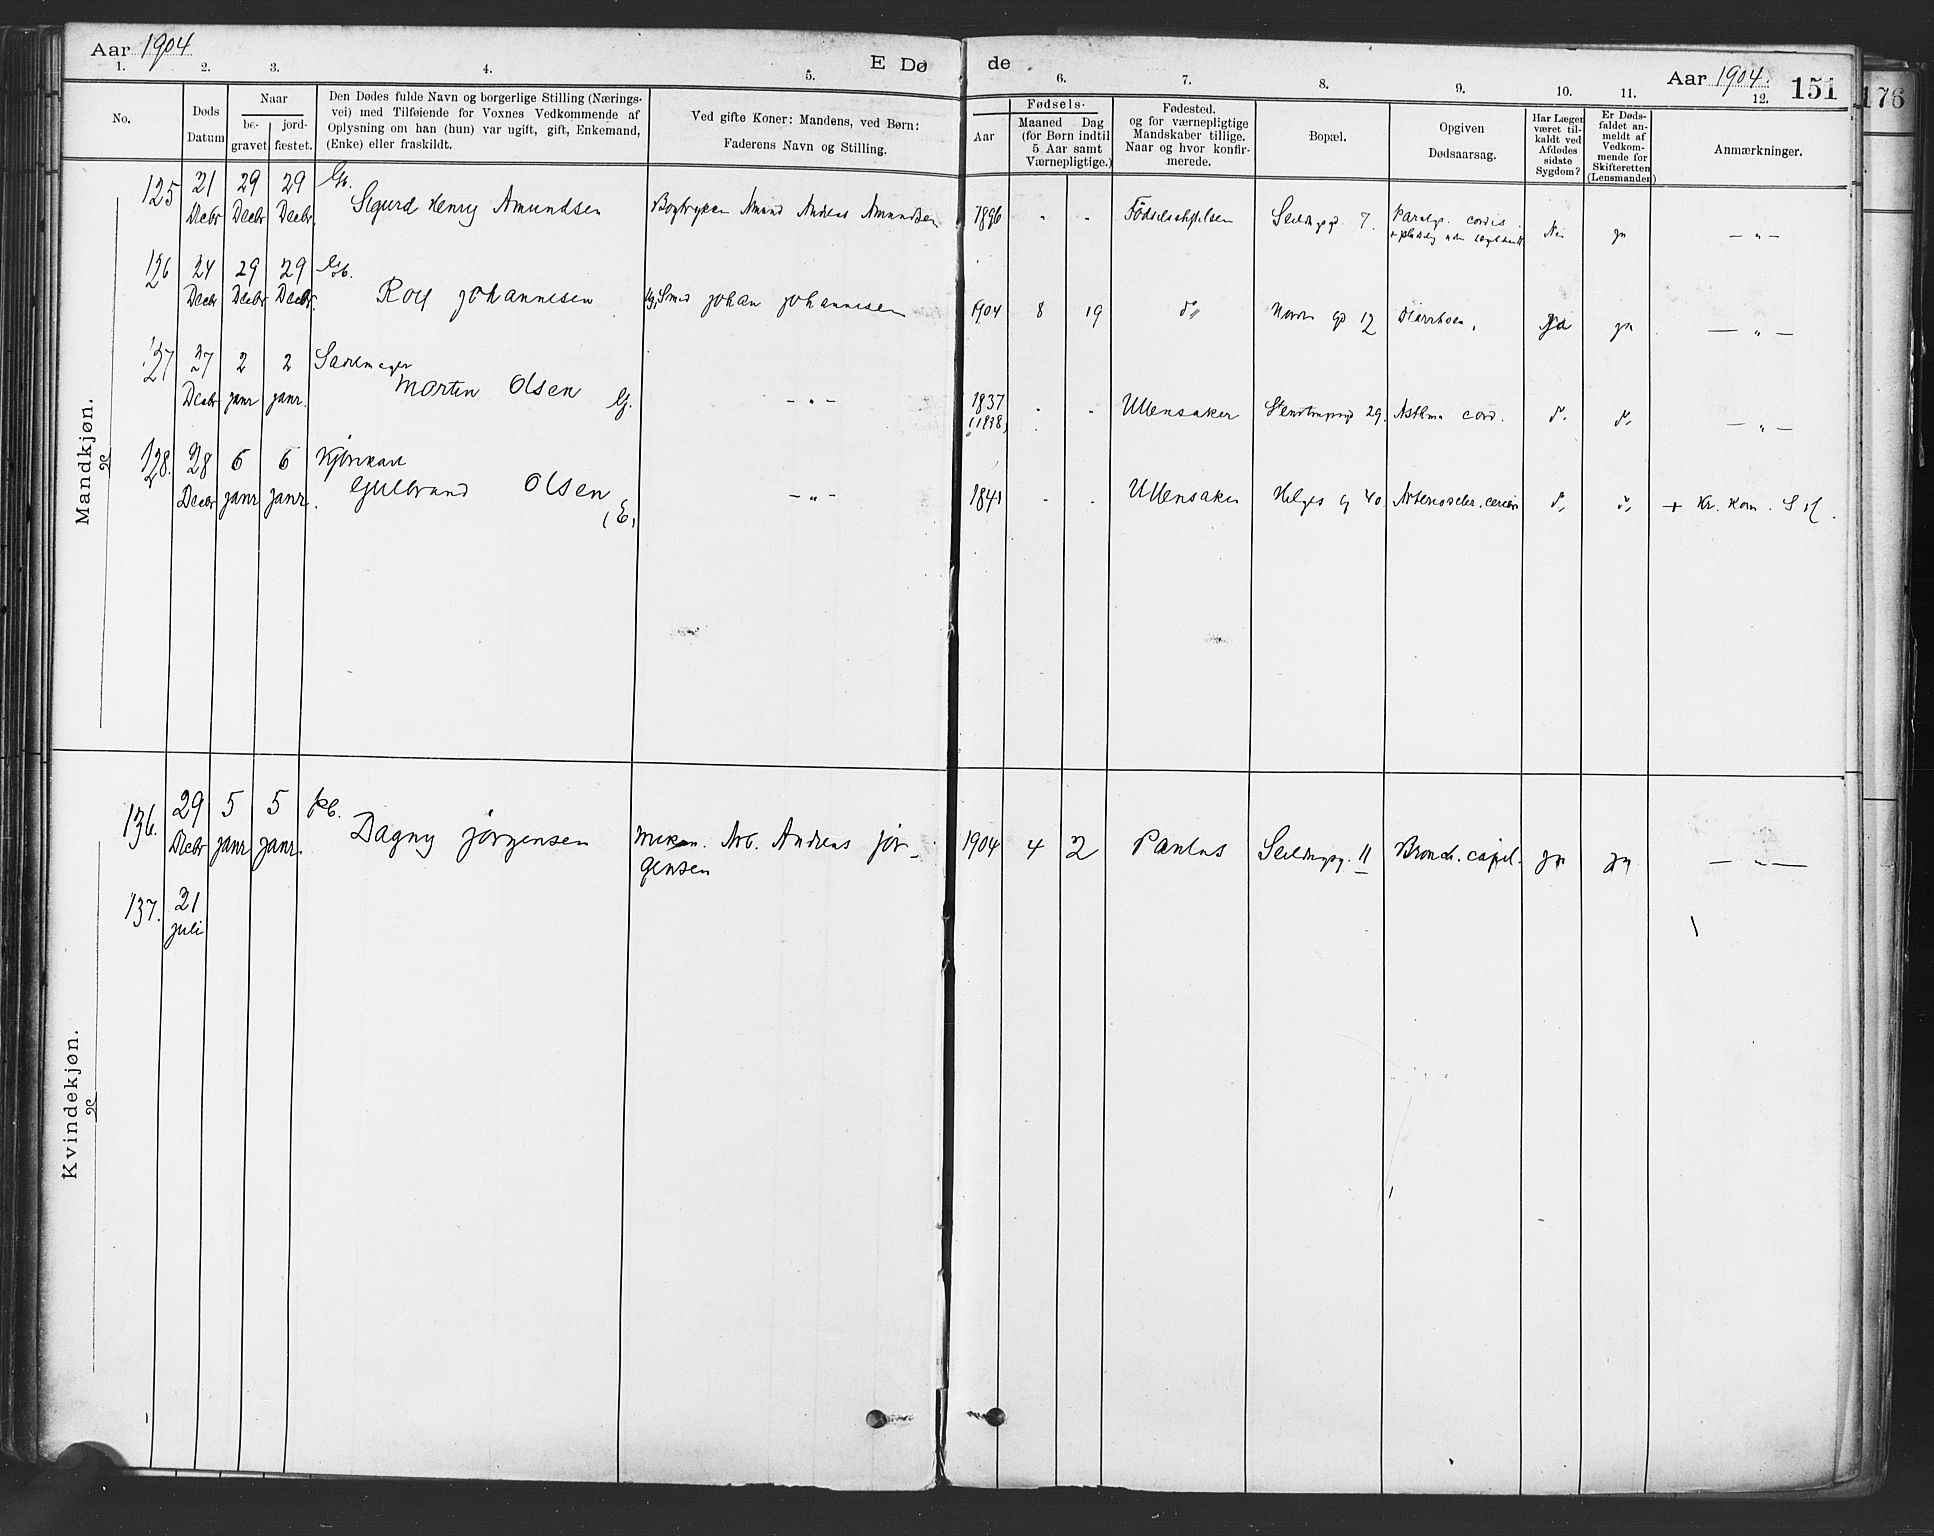 Aar 1904
E Dø de
Aar 1904.
151
176
1. 2. 3. 4. 5. 6. 7. 8. 9. 10. 11. 12.
No.
Døds Datum
Naar
be- gravet
jord- fæstet.
Den Dødes fulde Navn og borgerlige Stilling (Nærings-
vei) med Tilføiende for Voxnes Vedkommende af
Oplysning om han (hun) var ugift, gift, Enkemand,
(Enke) eller fraskildt.
Ved gifte Koner: Mandens, ved Børn:
Faderens Navn og Stilling.
Fødsels-
Aar
Maaned Dag
(for Børn indtil
5 Aar samt
Værnepligtige.)
Fødested,
og for værnepligtige
Mandskaber tillige.
Naar og hvor konfir-
merede.
Bopæl.
Opgiven
Dødsaarsag.
Har Læger
været til-
kaldt ved
Afdødes
sidste
Sygdom?
Er Døds-
faldet an-
meldt af
Vedkom-
mende for
Skifteretten
(Lensmanden)
Anmærkninger.
Mandkjøn.
125 21 Decbr 29 Decbr 29 Decbr.
Sigurd Henry Amundsen
Amund Andreas Amundsen
1896 " " Fødselsstiftelsen 7. cordis Nei ja — " —
126 24 Decbr 29 Decbr 29 Decbr.
Rolf Johannesen
Smed Johan Johannesen
1904 8 19 do 12 Diarrhoea, Ja ja — " —
127 27 Decbr 2 Janr 2 Janr.
Sadelmager
Morten Olsen G.
— " —
1837 (1838) " " Ullensaker 29. Asthma cord. do do — " —
128. 28 Decbr 6 Janr 6 Janr.
Gulbrand Olsen (E)
— " —
1841 " " Ullensaker Helges g 40. do do + Kr. Kom.
Kvindekjøn.
136. 29 Decbr 5 Janr 5 Janr. pb.
Dagny Jørgensen
Mekan. Arb. Andreas Jør-
gensen
1904 4 2 Paulus 11 Bronch. capil. ja ja — " —
137. 21 juli